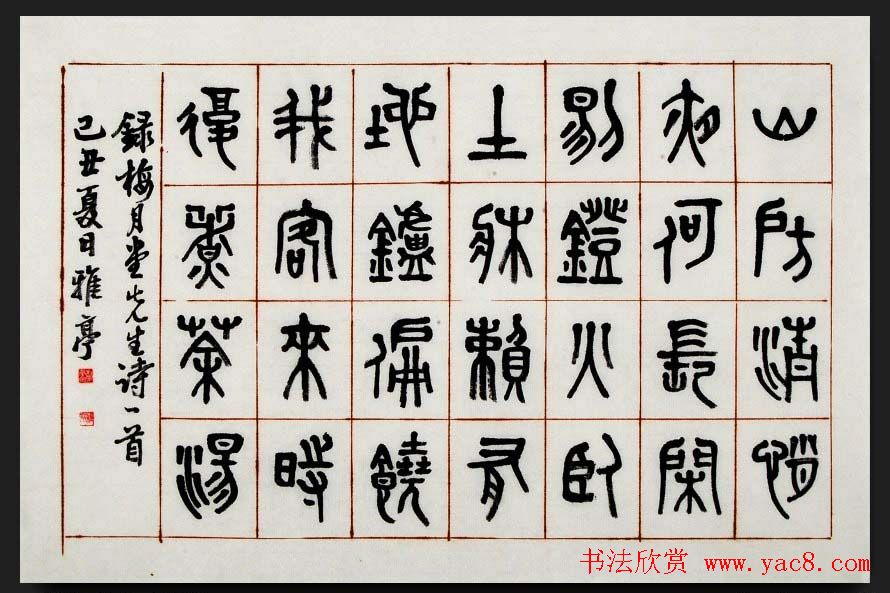 山房清悄
夜何長閑
剔鐙火臥
土牀賴有
地鑪偏饒
我客來時
復煮茶湯
録梅月堂先生诗一首
己丑夏日雅亭
书法欣赏 www.yac8.com